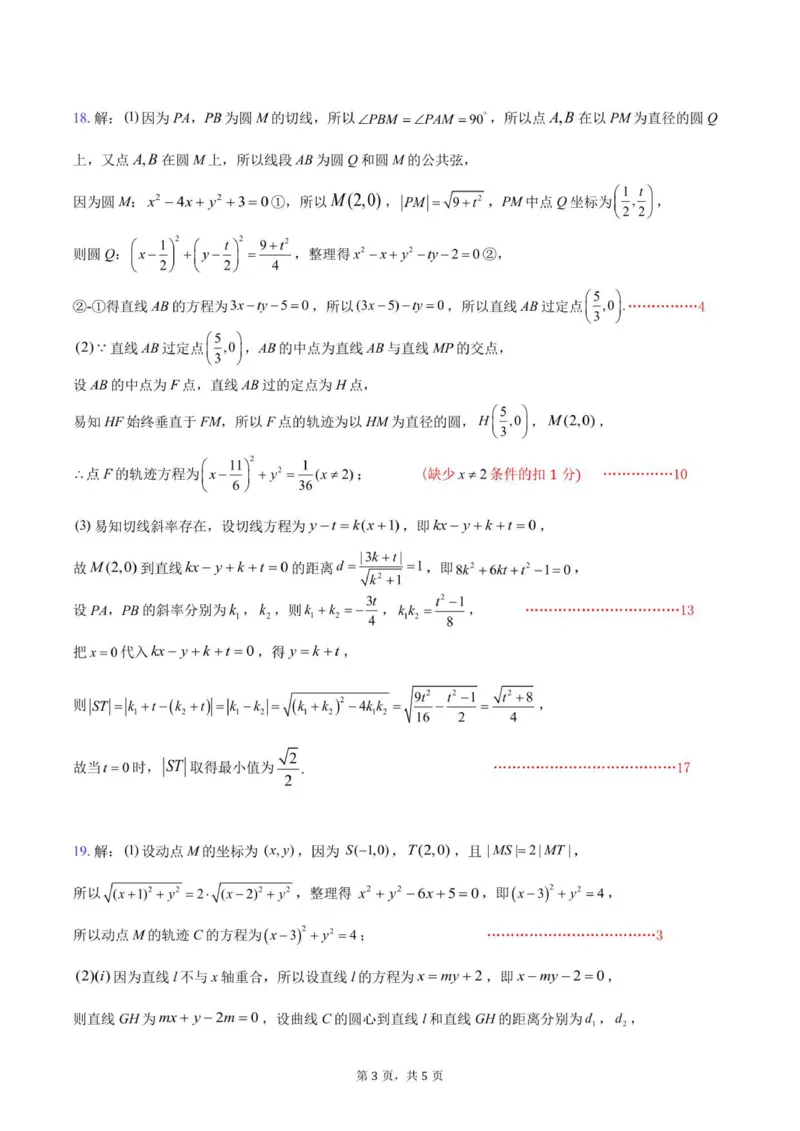 18. 解：(1)因为PA，PB为圆M的切线，所以∠PBM =∠PAM =90°，所以点A,B在以PM为直径的圆Q
上，又点A,B在圆M上，所以线段AB为圆Q和圆M的公共弦，
因为圆M：x² −4x+ y² +3=0①，所以M(2,0)，|PM|= √(9+t²)，PM中点Q坐标为(1/2, t/2)，
则圆Q：(x−1/2)² +(y−t/2)² = (9+t²)/4，整理得x² −x+ y² −ty−2=0②，
②-①得直线AB的方程为3x−ty−5=0，所以(3x−5)−ty=0，所以直线AB过定点(5/3,0).……………4
(2)∵直线AB过定点(5/3,0)，AB的中点为直线AB与直线MP的交点，
设AB的中点为F点，直线AB过的定点为H点，
易知HF始终垂直于FM，所以F点的轨迹为以HM为直径的圆，H(5/3,0)，M(2,0)，
∴点F的轨迹方程为(x−11/6)² + y² = 1/36 (x≠2)； (缺少x≠2条件的扣1分) ……………10
(3)易知切线斜率存在，设切线方程为y−t=k(x+1)，即kx−y+k+t=0，
故M(2,0)到直线kx−y+k+t=0的距离d = |3k+t|/√(k²+1) =1，即8k² +6kt+t² −1=0，
设PA，PB的斜率分别为k₁，k₂，则k₁+k₂ =−3t/4，k₁k₂ = (t²−1)/8， ……………………………13
把x=0代入kx−y+k+t=0，得y=k+t，
则|ST|=|k₁+t−(k₂+t)|=|k₁−k₂|= √((k₁+k₂)²−4k₁k₂) = √(9t²/16 − (t²−1)/2) = √(t²+8)/4，
故当t=0时，|ST|取得最小值为√2/2. …………………………………17
19. 解：(1)设动点M的坐标为 (x,y)，因为 S(−1,0)，T(2,0)，且 |MS|=2|MT|，
所以 √((x+1)²+y²) =2·√((x−2)²+y²)，整理得 x² + y² −6x+5=0，即(x−3)² + y² =4，
所以动点M的轨迹C的方程为(x−3)² + y² =4； ………………………………3
(2)(i)因为直线l不与x轴重合，所以设直线l的方程为x=my+2，即x−my−2=0，
则直线GH为mx+ y−2m=0，设曲线C的圆心到直线l和直线GH的距离分别为d₁，d₂，
第 3 页，共 5 页